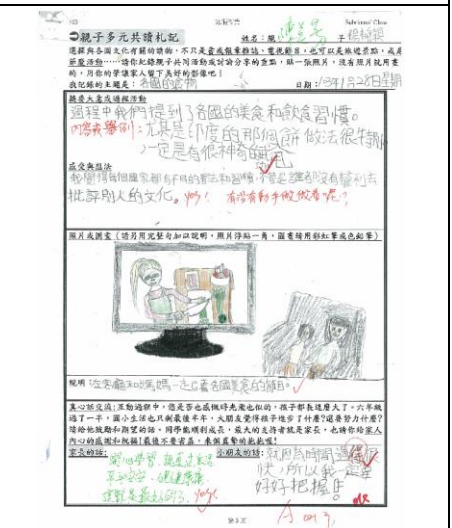 親子多元共讀札記
姓名：親 子
選擇與各國文化有關的讀物，不只是書或報章雜誌、電視節目，也可以是旅遊景點，或是
節慶活動……請你紀錄親子共同活動或討論分享的重點，貼一張照片，沒有照片就用畫
的，用你的掌鏡家人留下美好的影像吧！
我記錄的主題是：各國的食物 日期：
摘要大意或過程活動
過程中我們提到了各國的美食和飲食習慣。
內容或舉例：尤其是印度的那個餅做法很特別
一定是有很神奇的
感受與想法
我覺得每個國家都有不同的
批評別人的文化。yes！有沒有動手做做看呢？
照片或圖畫（請另用完整句加以說明，照片浮貼一角，圖畫請用彩虹筆或色鉛筆）
說明：在客廳和媽媽一起看各國美食的節目。
真心話交流：互動過程中，您是否也感慨時光飛也似的，孩子都長這麼大了。六年級
過了一半，國小生活也只剩最後半年，大朋友覺得孩子進步了什麼？還要努力什麼？
請給他鼓勵和期望的話。同學能順利成長，最大的支持者就是家長，也請你給家人
內心的感謝和祝福！最後不要害羞，來個真摯的抱抱喔！
家長的話：
開心學習
平平安安、健健康康
這就是最大的
小朋友的話：就因為時間過得很
快，所以我一定要
好好把握！